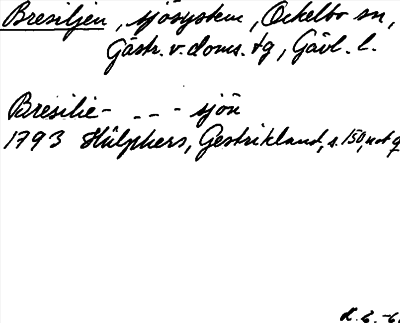 Bresiljen, sjösystem, Ockelbo sn,
Gästr. v. doms. tg, Gävl. l.
Bresilie- - - - sjön
1793 Hülphers, Gestrikland, s. 150, not q